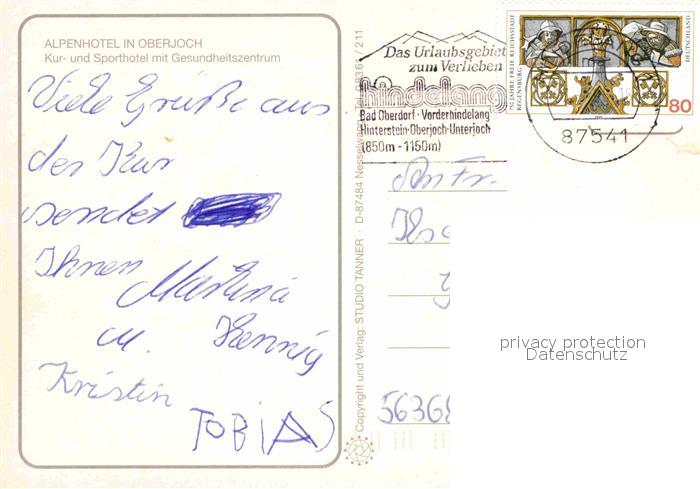 ALPENHOTEL IN OBERJOCH
Kur- und Sporthotel mit Gesundheitszentrum
Viele Grüße aus
der Kur
sendet
Ihnen Martina
u. Hennig
Kristin
TOBIAS
Copyright und Verlag: STUDIO TANNER · D-87484 Nesselwang
211
Das Urlaubsgebiet
zum Verlieben
hindelang
Bad Oberdorf · Vorderhindelang
Hinterstein-Oberjoch-Unterjoch
(850m - 1150m)
87541
750 JAHRE FREIE REICHSSTADT
REGENSBURG
DEUTSCHLAND
80
An Fr.
56368
privacy protection
Datenschutz